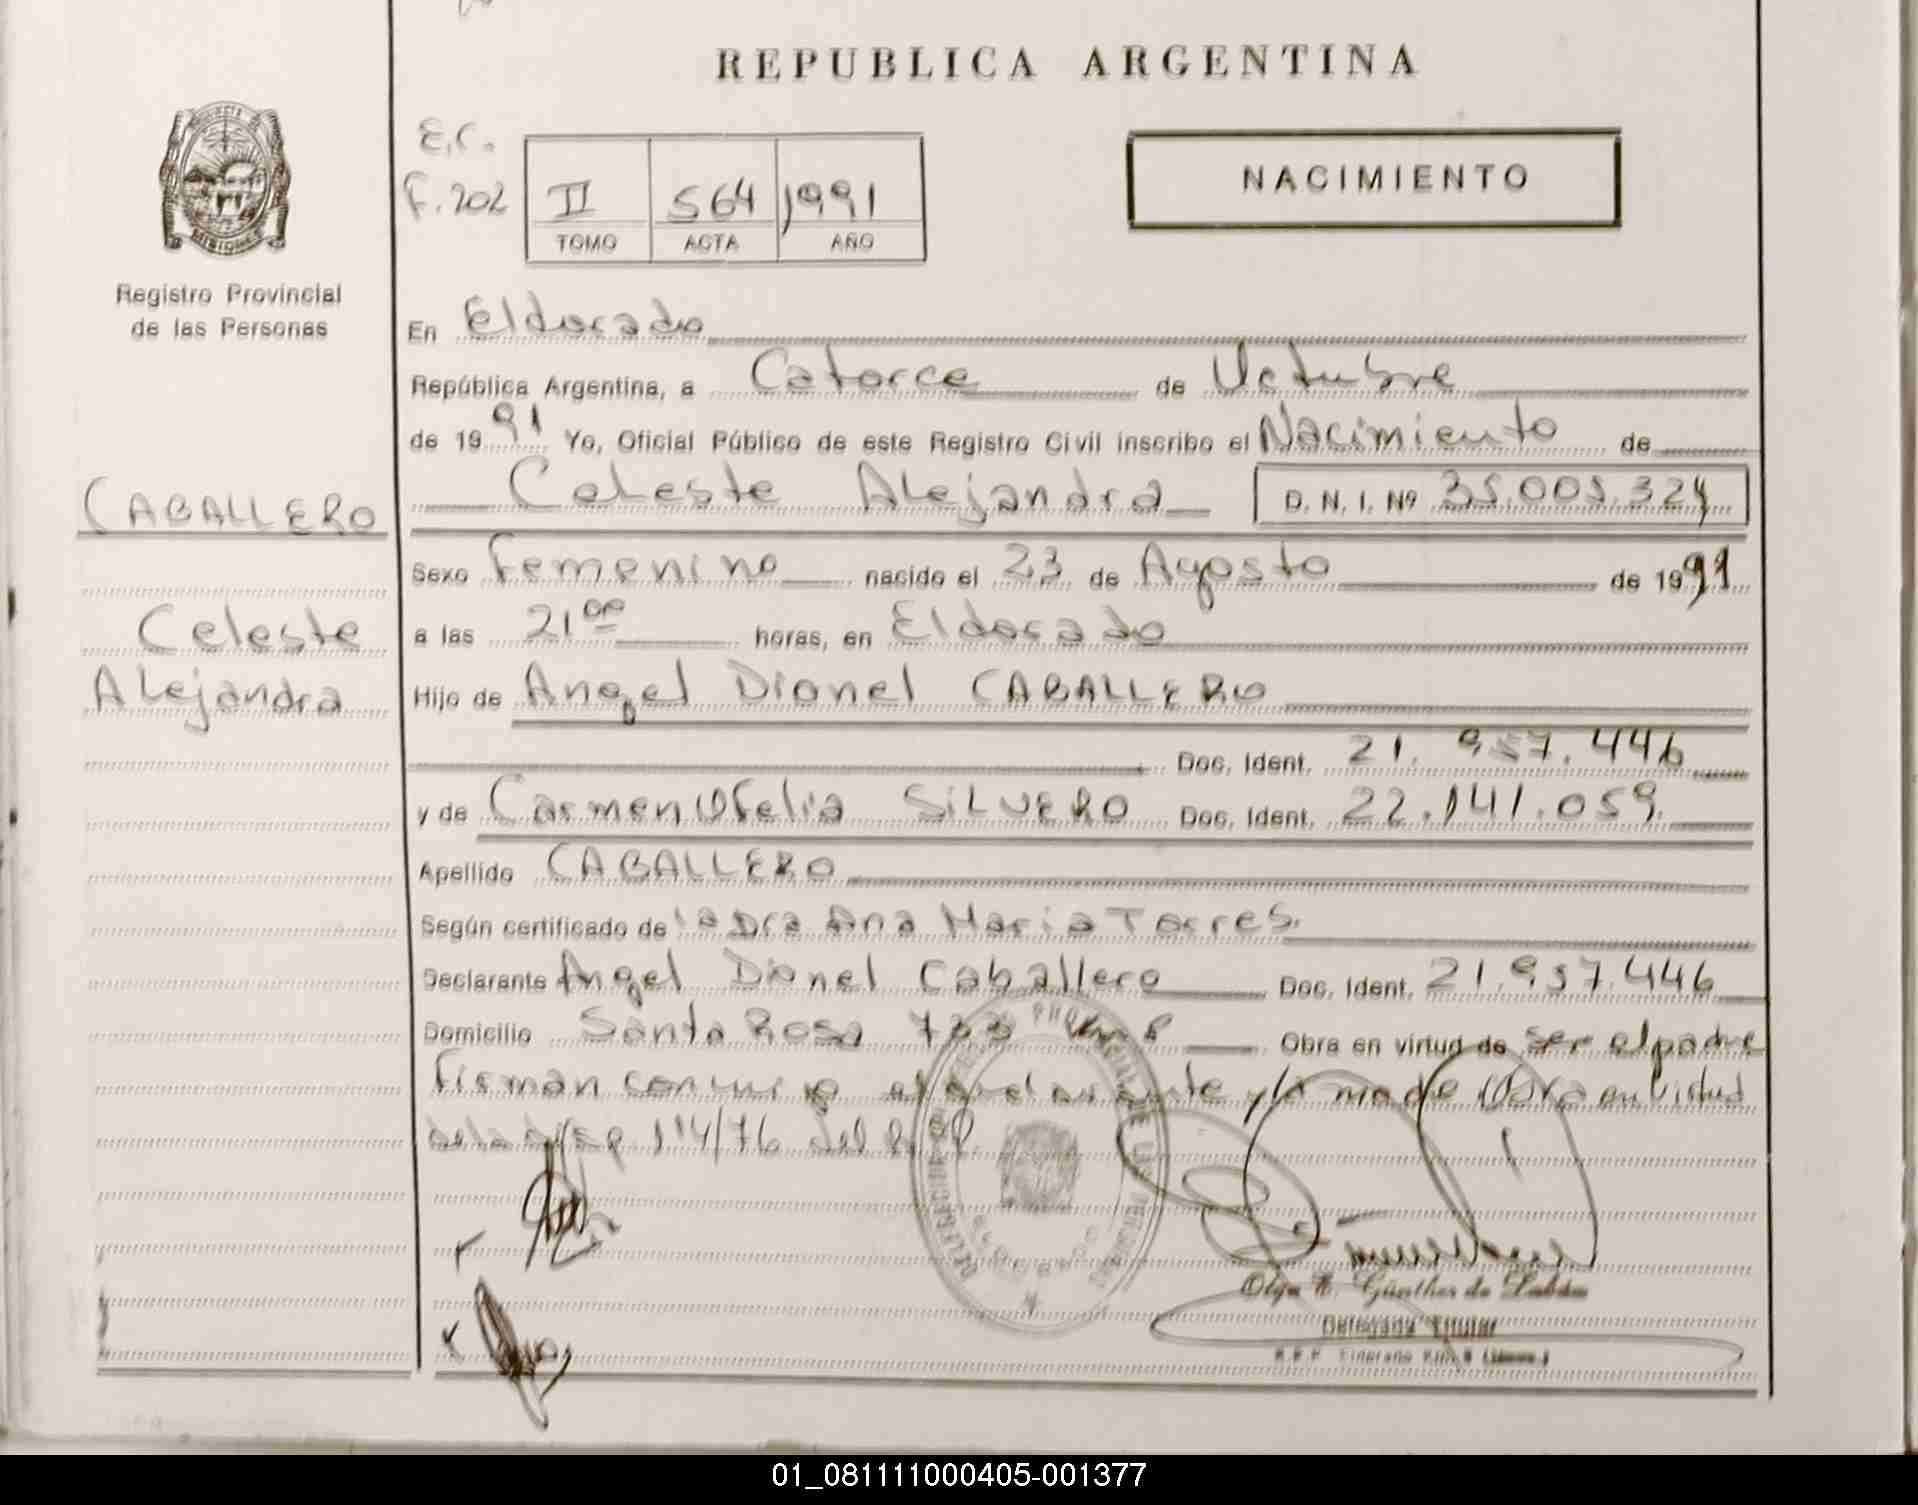 REPUBLICA ARGENTINA
MISIONES
Registro Provincial
de las Personas
E.C.
F. 202
II 564 1991
TOMO ACTA AÑO
NACIMIENTO
En Eldorado
República Argentina, a Catorce de Octubre
de 1991 Yo, Oficial Público de este Registro Civil inscribo el Nacimiento de
CABALLERO
Celeste Alejandra D. N. I. Nº 35.005.324
Sexo Femenino nacido el 23 de Agosto de 1991
Celeste
Alejandra
a las 21 00 horas, en Eldorado
Hijo de Angel Dionel CABALLERO
Doc. Ident. 21.957.446
y de Carmen Ofelia SILVERO Doc. Ident. 22.141.059
Apellido CABALLERO
Según certificado de la Dra Ana Maria Torres.
Declarante Angel Dionel Caballero Doc. Ident. 21.957.446
Domicilio Santa Rosa Obra en virtud de ser el padre
Firman conmigo el declarante y la madre Obra en virtud
de la 114/76 del
Olga Günther de
Delegada Titular
01_081111000405-001377